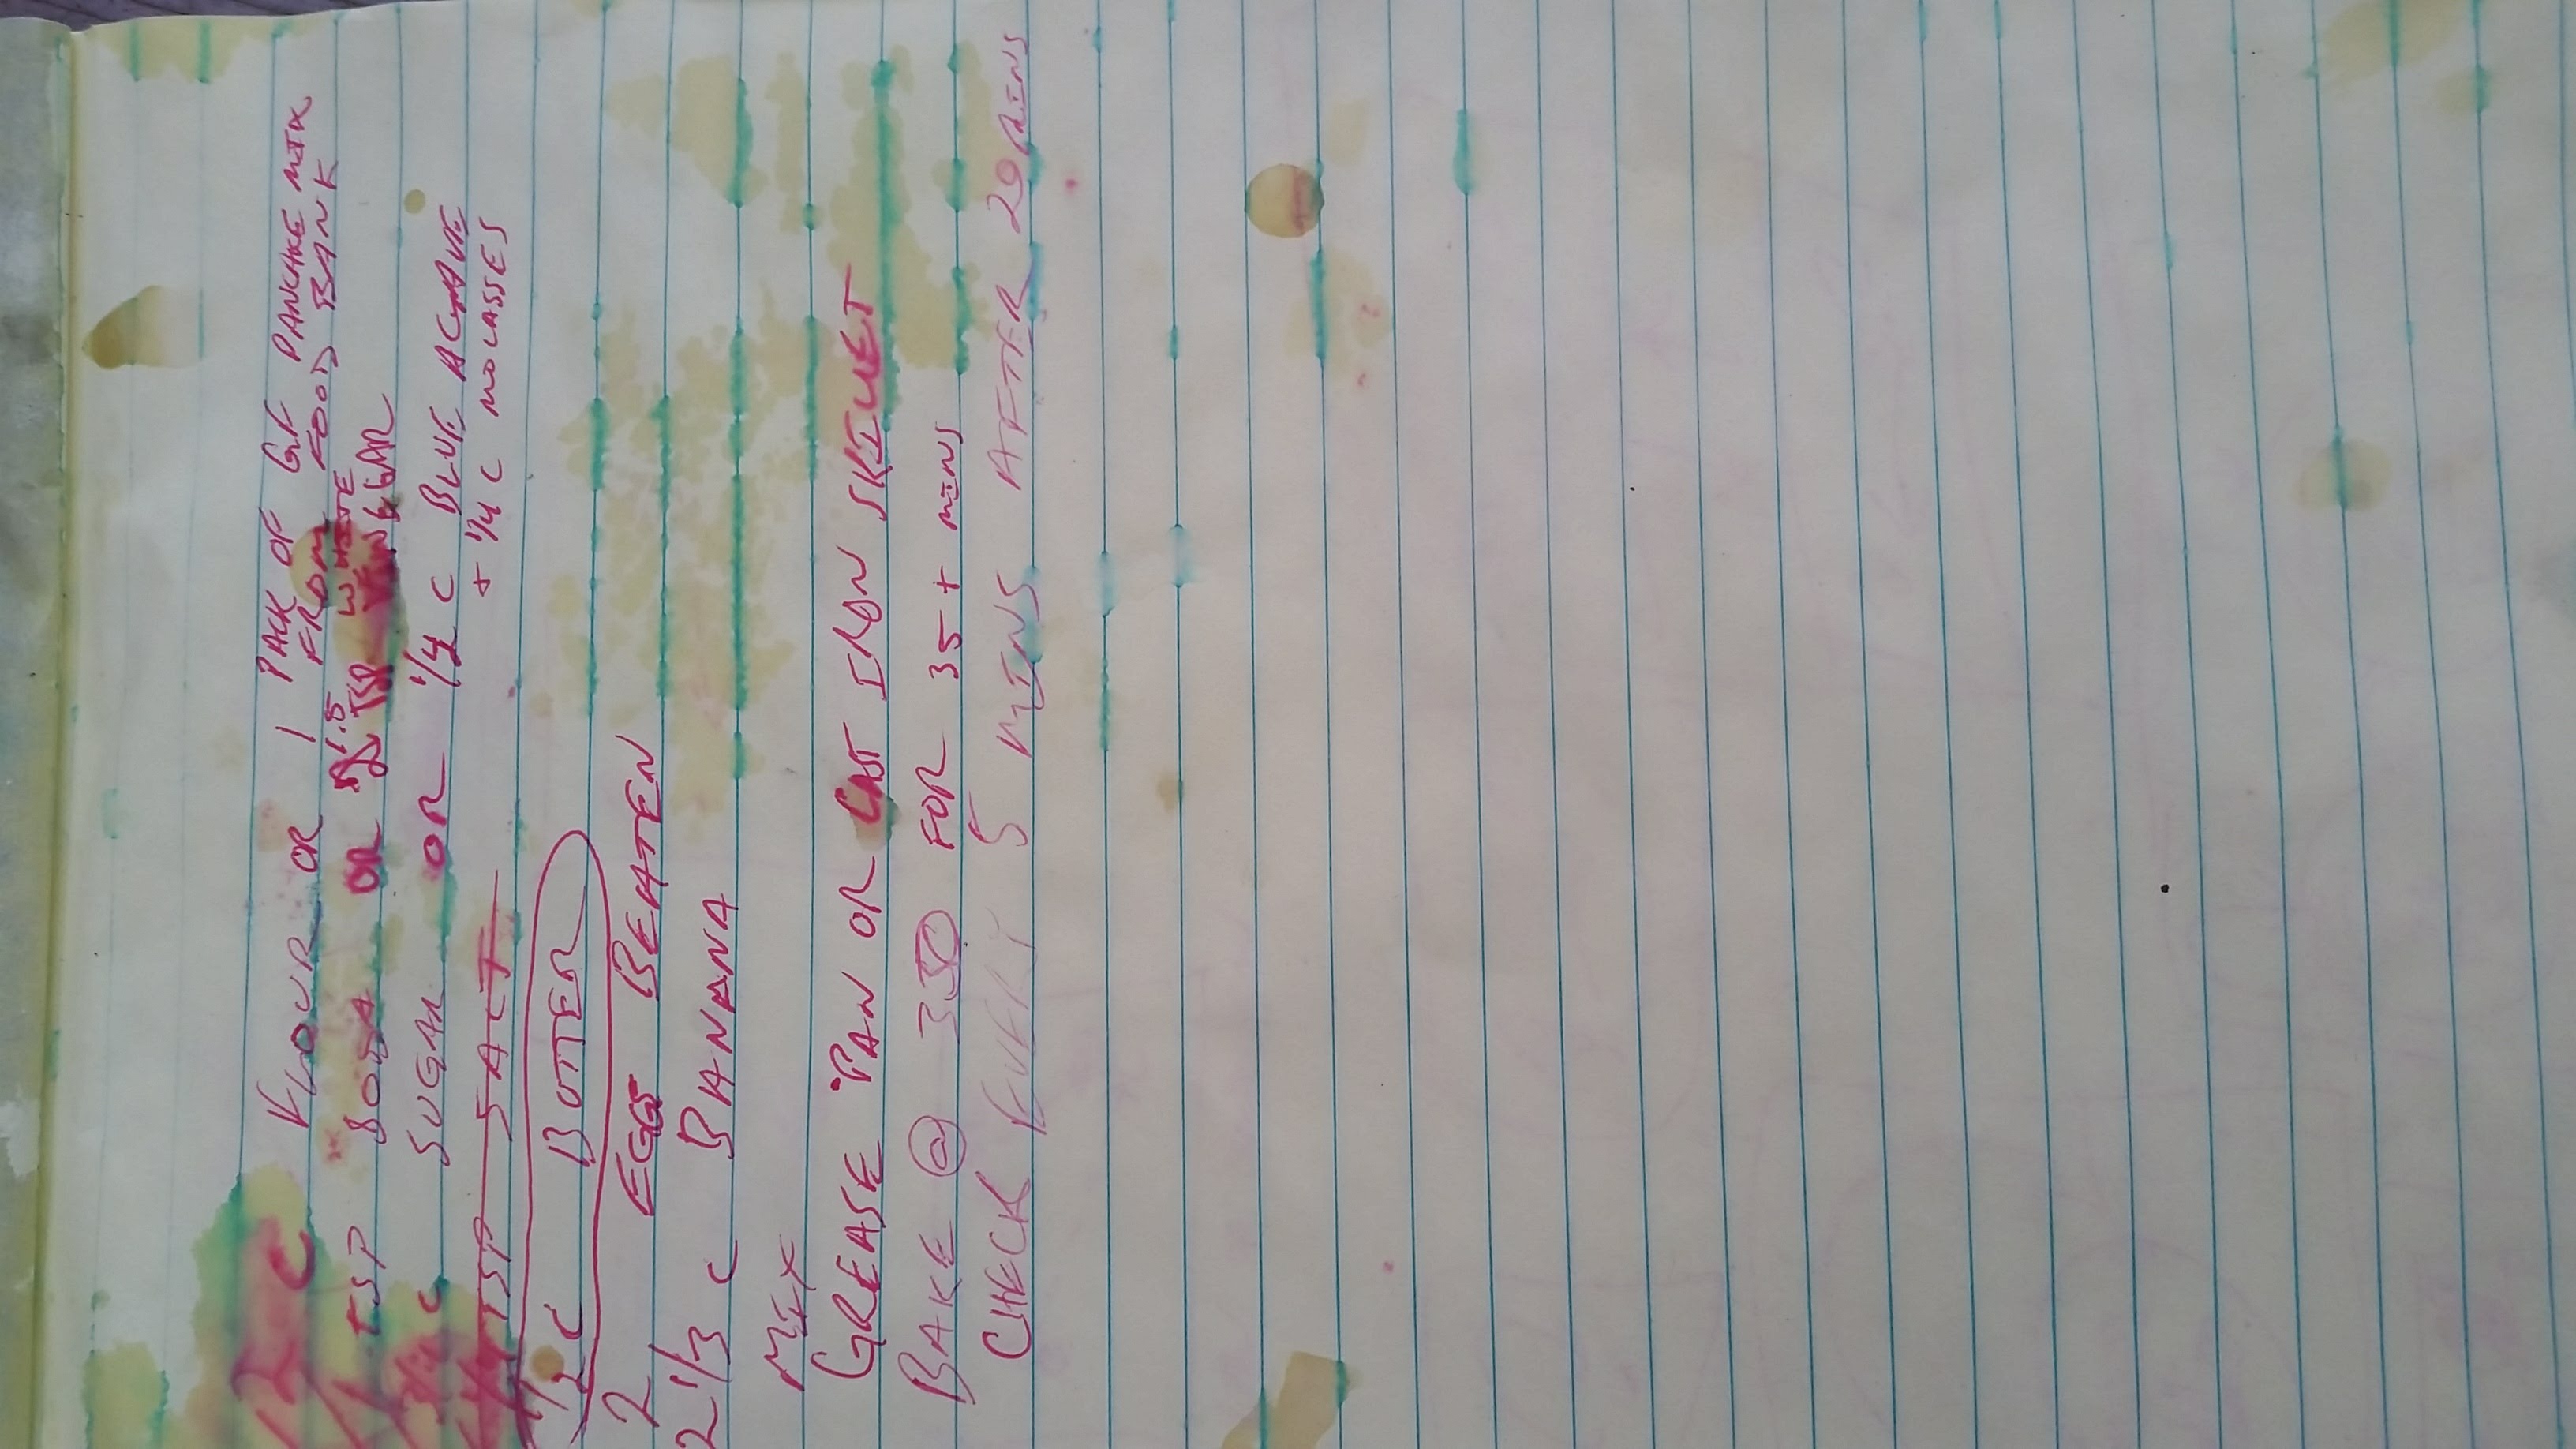 2 C FLOUR OR 1 PACK OF GF PANCAKE MIX
FROM FOOD BANK
1 tsp SODA OR 1.5 TSP WHITE VINEGAR
3/4 C SUGAR OR 1/4 C BLUE AGAVE
+ 1/4 C MOLASSES
1/4 TSP SALT
1/2 C BUTTER
2 EGGS BEATEN
2 1/3 C BANANA
MIX
GREASE PAN OR CAST IRON SKILLET
BAKE @ 350 FOR 35+ MINS
CHECK EVERY 5 MINS AFTER 20MINS